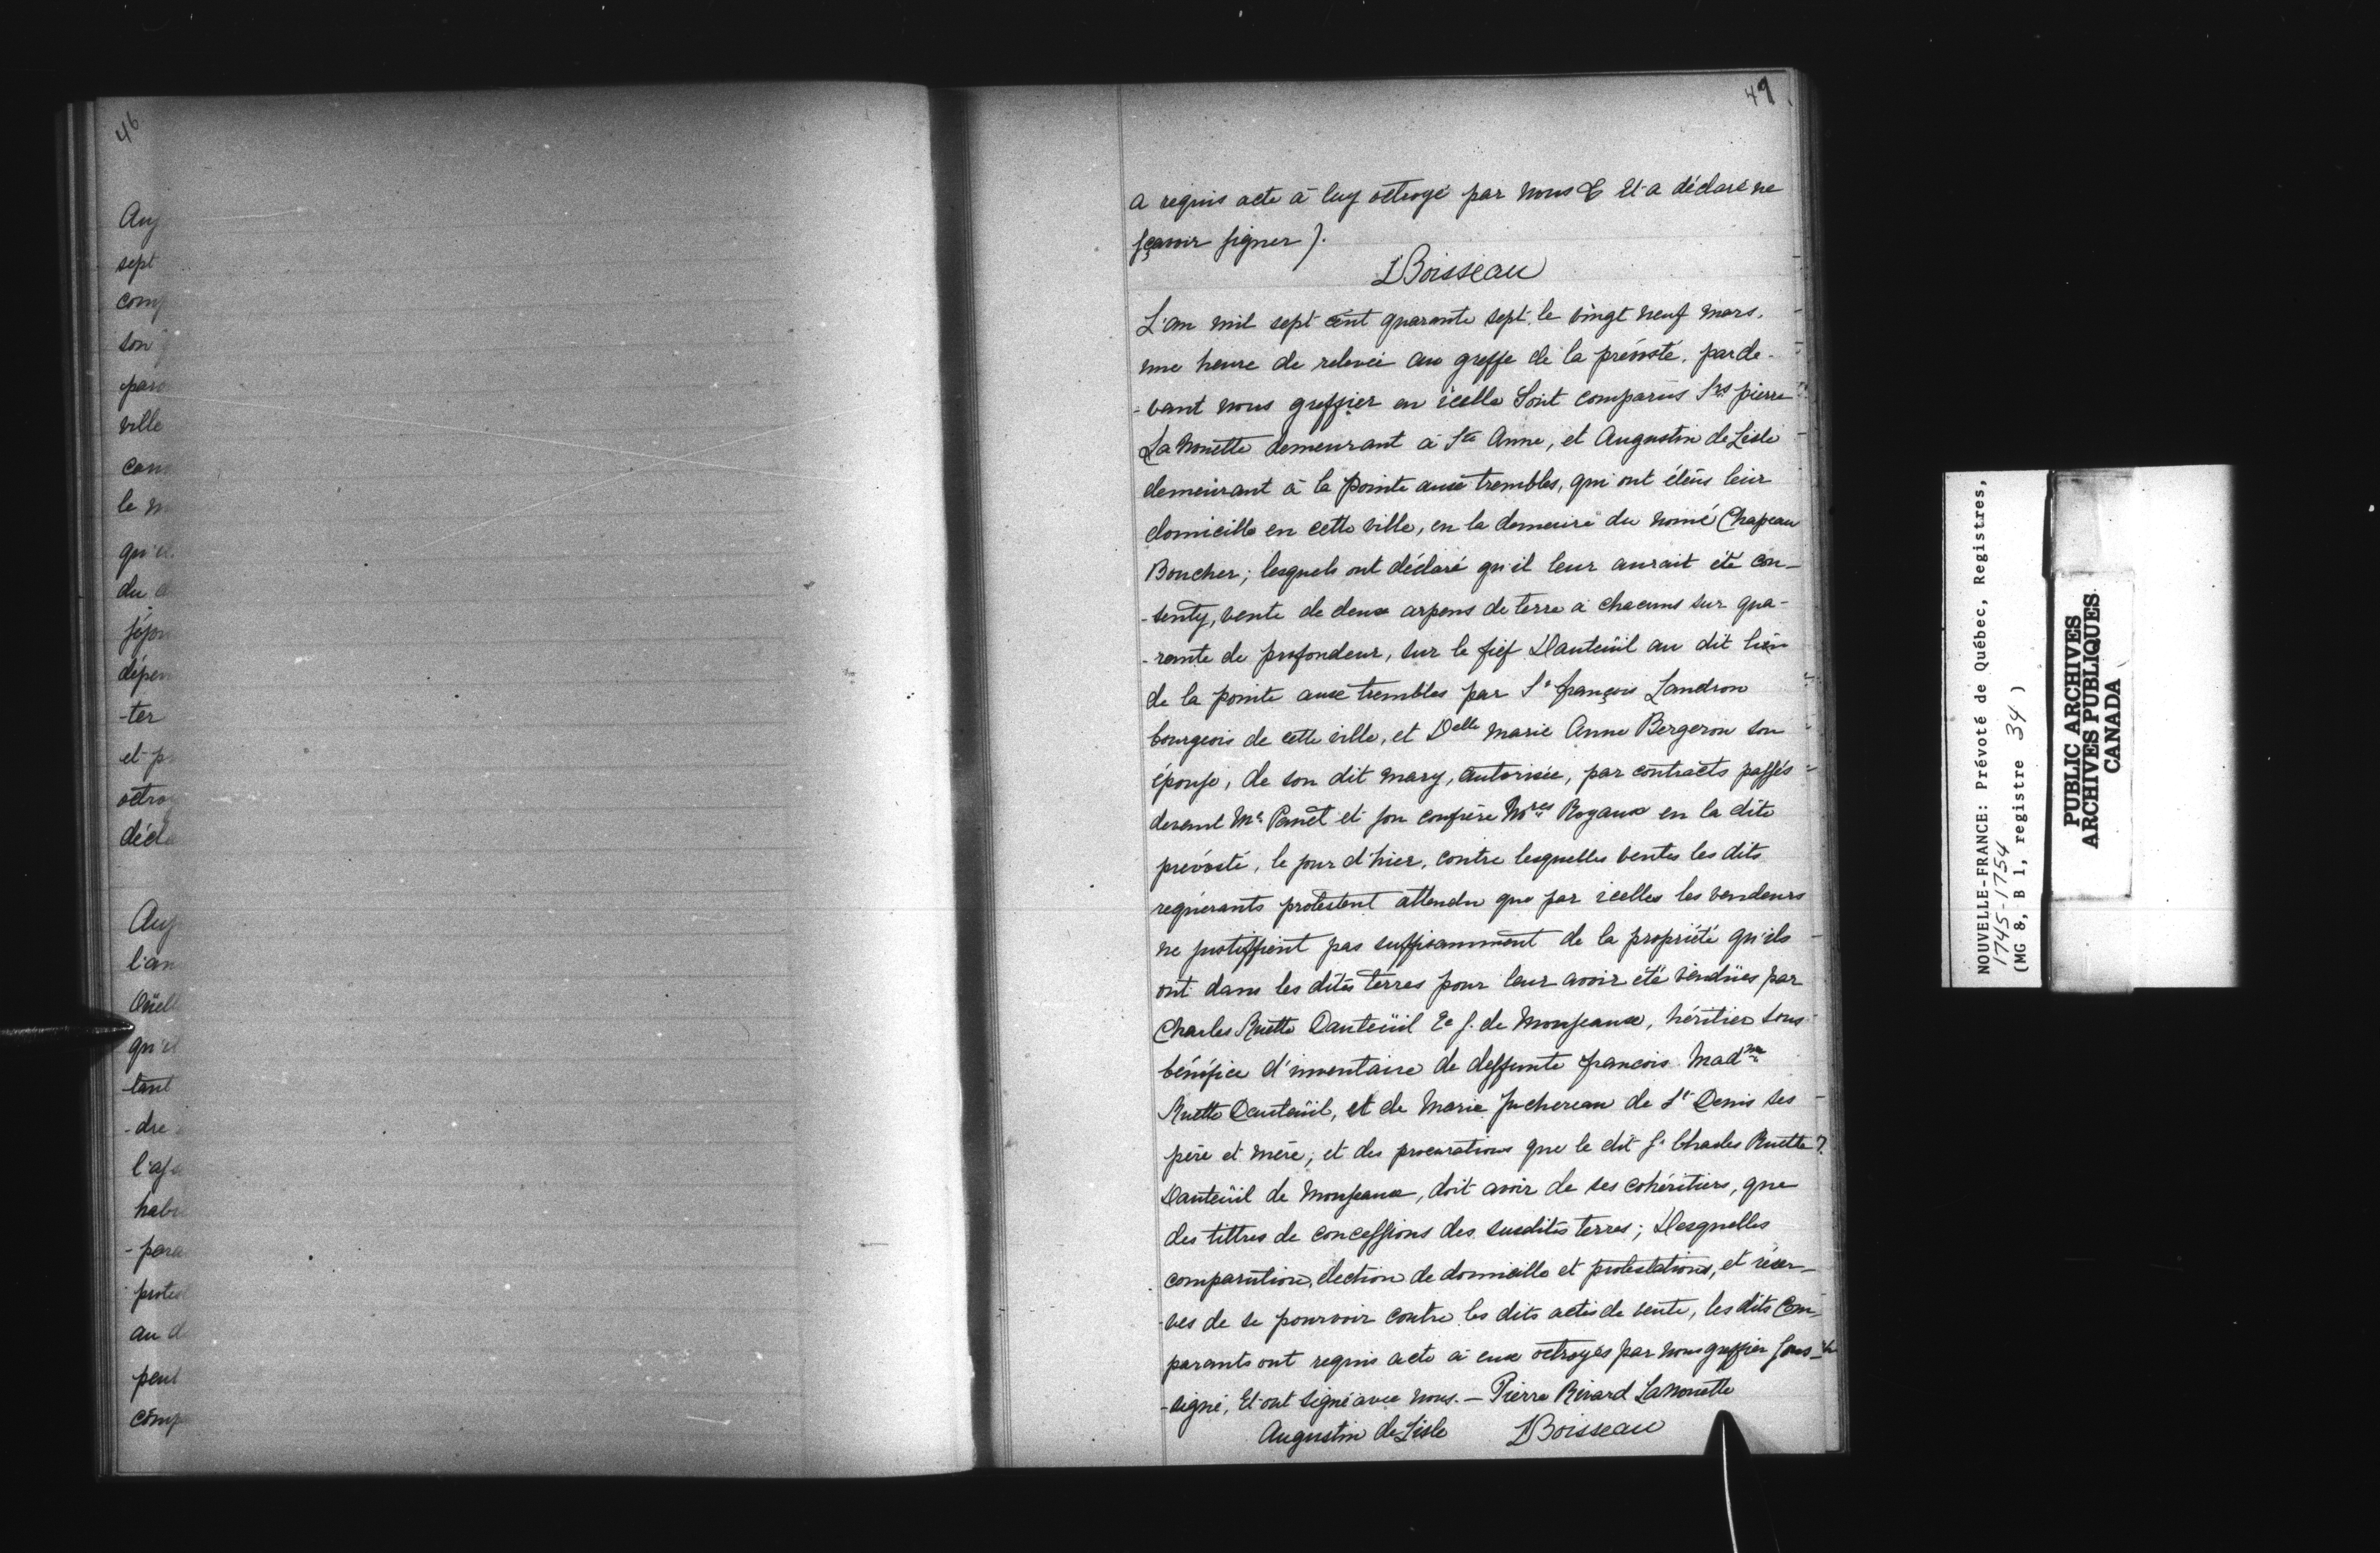 46
Aug
sept
com
son
par
ville
can
le m
qu'il
du d
séjou
dépen
-ter
et p
octro
décla
Aug
l'an
Oüell
qu'il
tant
-dre
l'aj
habi
-para
protest
au d
peut
comp
47
a requis acte à luy octroyé par nous & Et a déclaré ne
sçavoir signer ).
LBoisseau
L'an mil sept cent quarante sept, le vingt neuf mars,
une heure de relevée au greffe de la prévosté, parde-
-vant nous greffier en icelle Sont comparûs Srs pierre
La Nouette demeurant à Ste Anne, et Augustin de Lisle
demeurant à la pointe aux trembles, qui ont élëus leur
domicille en cette ville, en la demeure du nomé Chapeau
Boucher; lesquels ont déclaré qu'il leur aurait été con-
-senty, vente de deux arpens de terre à chacuns sur qua-
-rante de profondeur, sur le fief Dauteüil au dit lieu
de la pointe aux trembles par Sr françois Landron
bourgeois de cette ville, et Delle marie Anne Bergeron son
épouse, de son dit mary, autorisée, par contracts passés
devant Me Panet et son confrère Nores Royaux en la dite
prévosté, le jour d'hier, contre lesquelles ventes les dits
requérants protestent attendu que par icelles les vendeurs
ne justiffient pas suffisamment de la propriété qu'ils
ont dans les dites terres pour leur avoir été vendües par
Charles Ruette Dauteüil Er S. de Monseaux, héritier sous
bénéfice d'inventaire de deffunte francois Madne
Ruette Dauteüil, et de Marie Juchereau de St Denis ses
père et mère; et des procurations que le dit Sr Charles Ruette
Dauteüil de Monseaux, doit avoir de ses cohéritiers, que
des tittres de concessions des susdites terres; Desquelles
comparution, élection de domicille et protestations, et réser-
-ves de se pourvoir contre les dits actes de vente, les dits Com-
parants ont requis acte à eux octroyés par nous greffier Sous-
-signé, Et ont signé avec nous. - Pierre Rivard LaNouette
Augustin de Lisle LBoisseau
NOUVELLE-FRANCE: Prévoté de Québec, Registres,
1745-1754
(MG 8, B 1, registre 34 )
PUBLIC ARCHIVES
ARCHIVES PUBLIQUES
CANADA